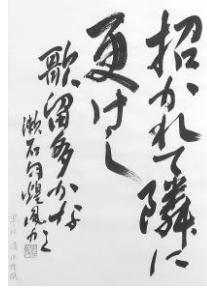 招かれて隣に
更けし
歌留多かな
漱石句 煌凰力